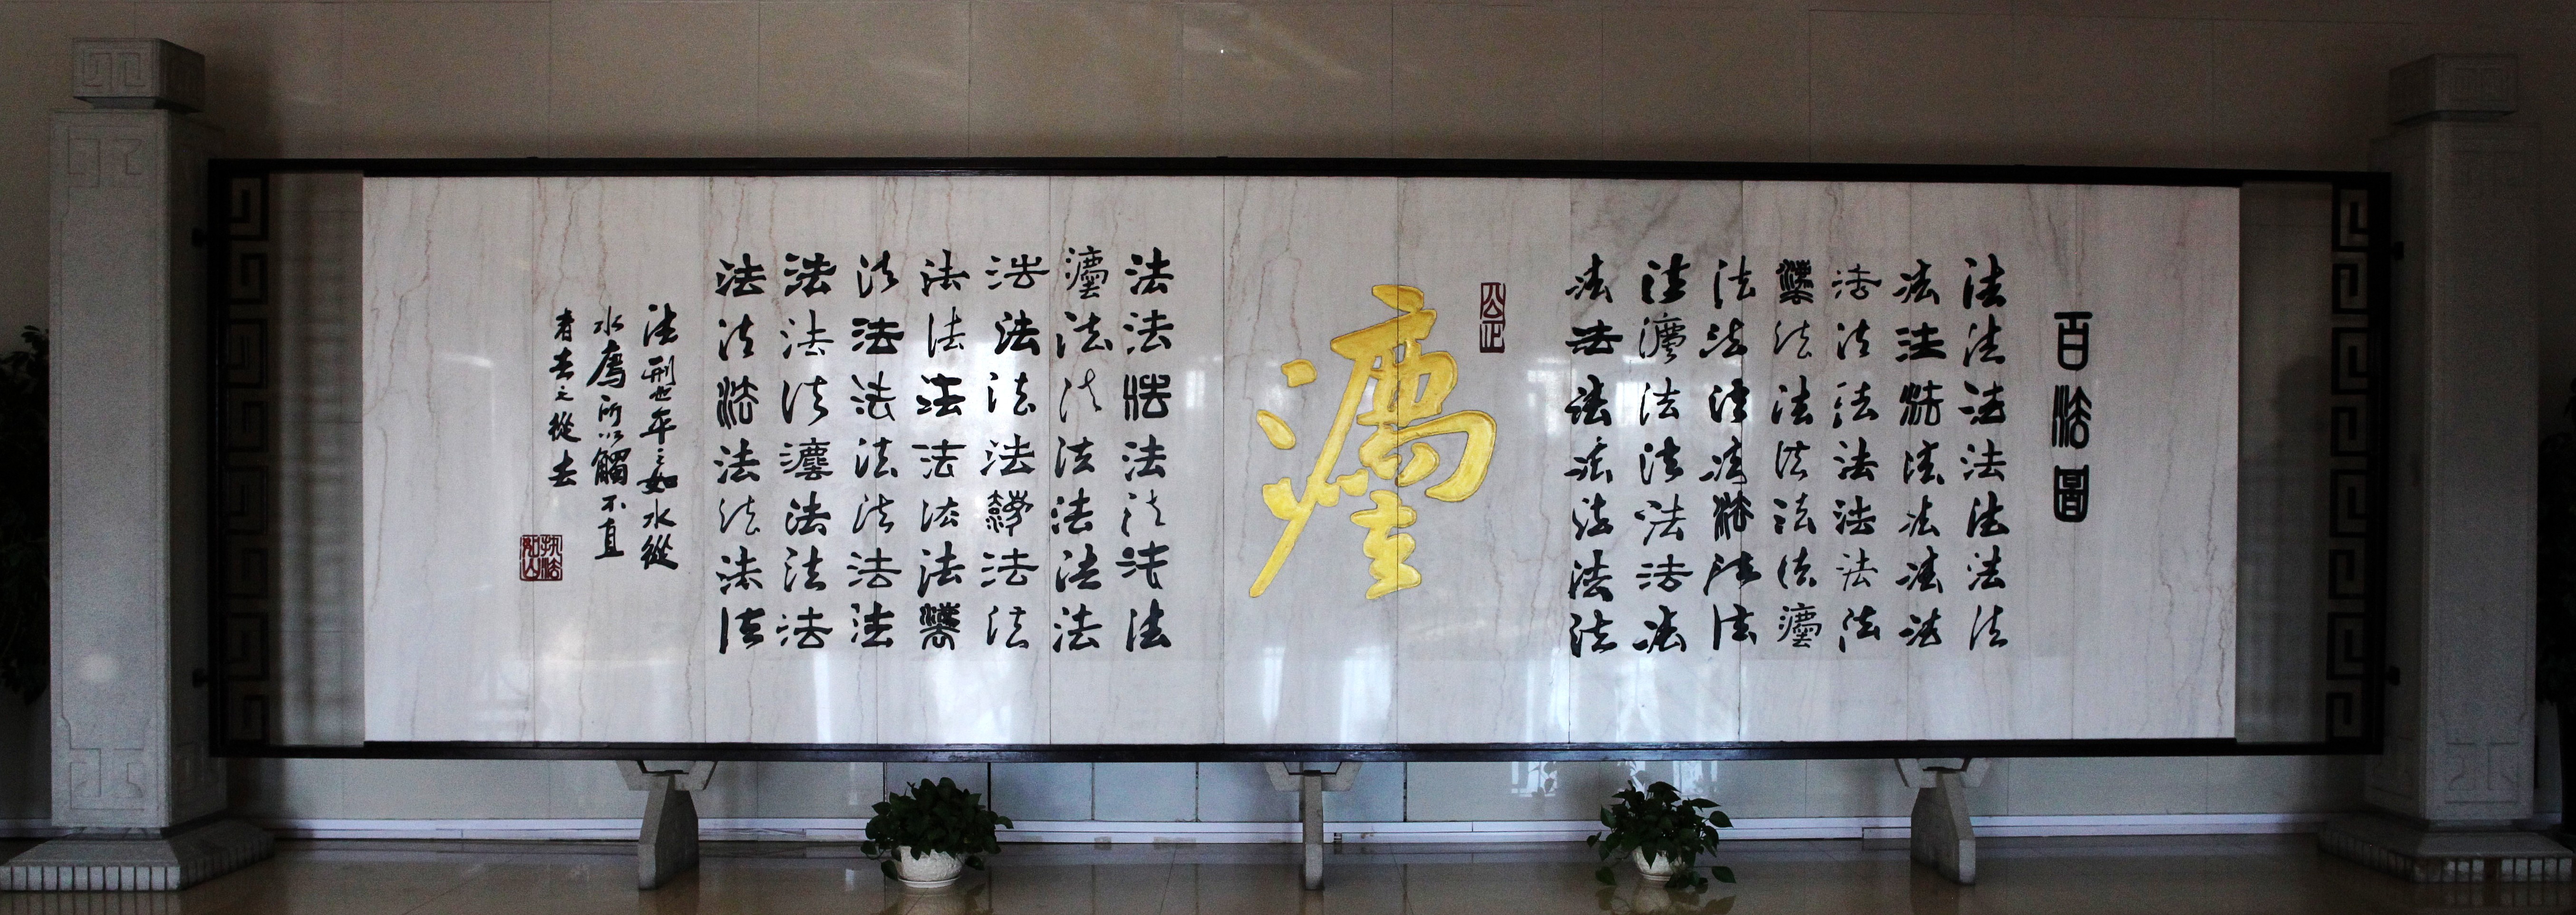 百法圖
法法法法法法法
法法法法法法法
法法法法法法法
灋法法法法法灋
法法法法法法法
法灋法法法法法
法法法法法法法
公正
灋
法法法法法法法
灋法法法法法法
法法法法法法
法法法法法法灋
法法法法法法法
法法法灋法法法
法法法法法法法
法刑也平之如水從
水廌所以觸不直
者去之從去
执法如山